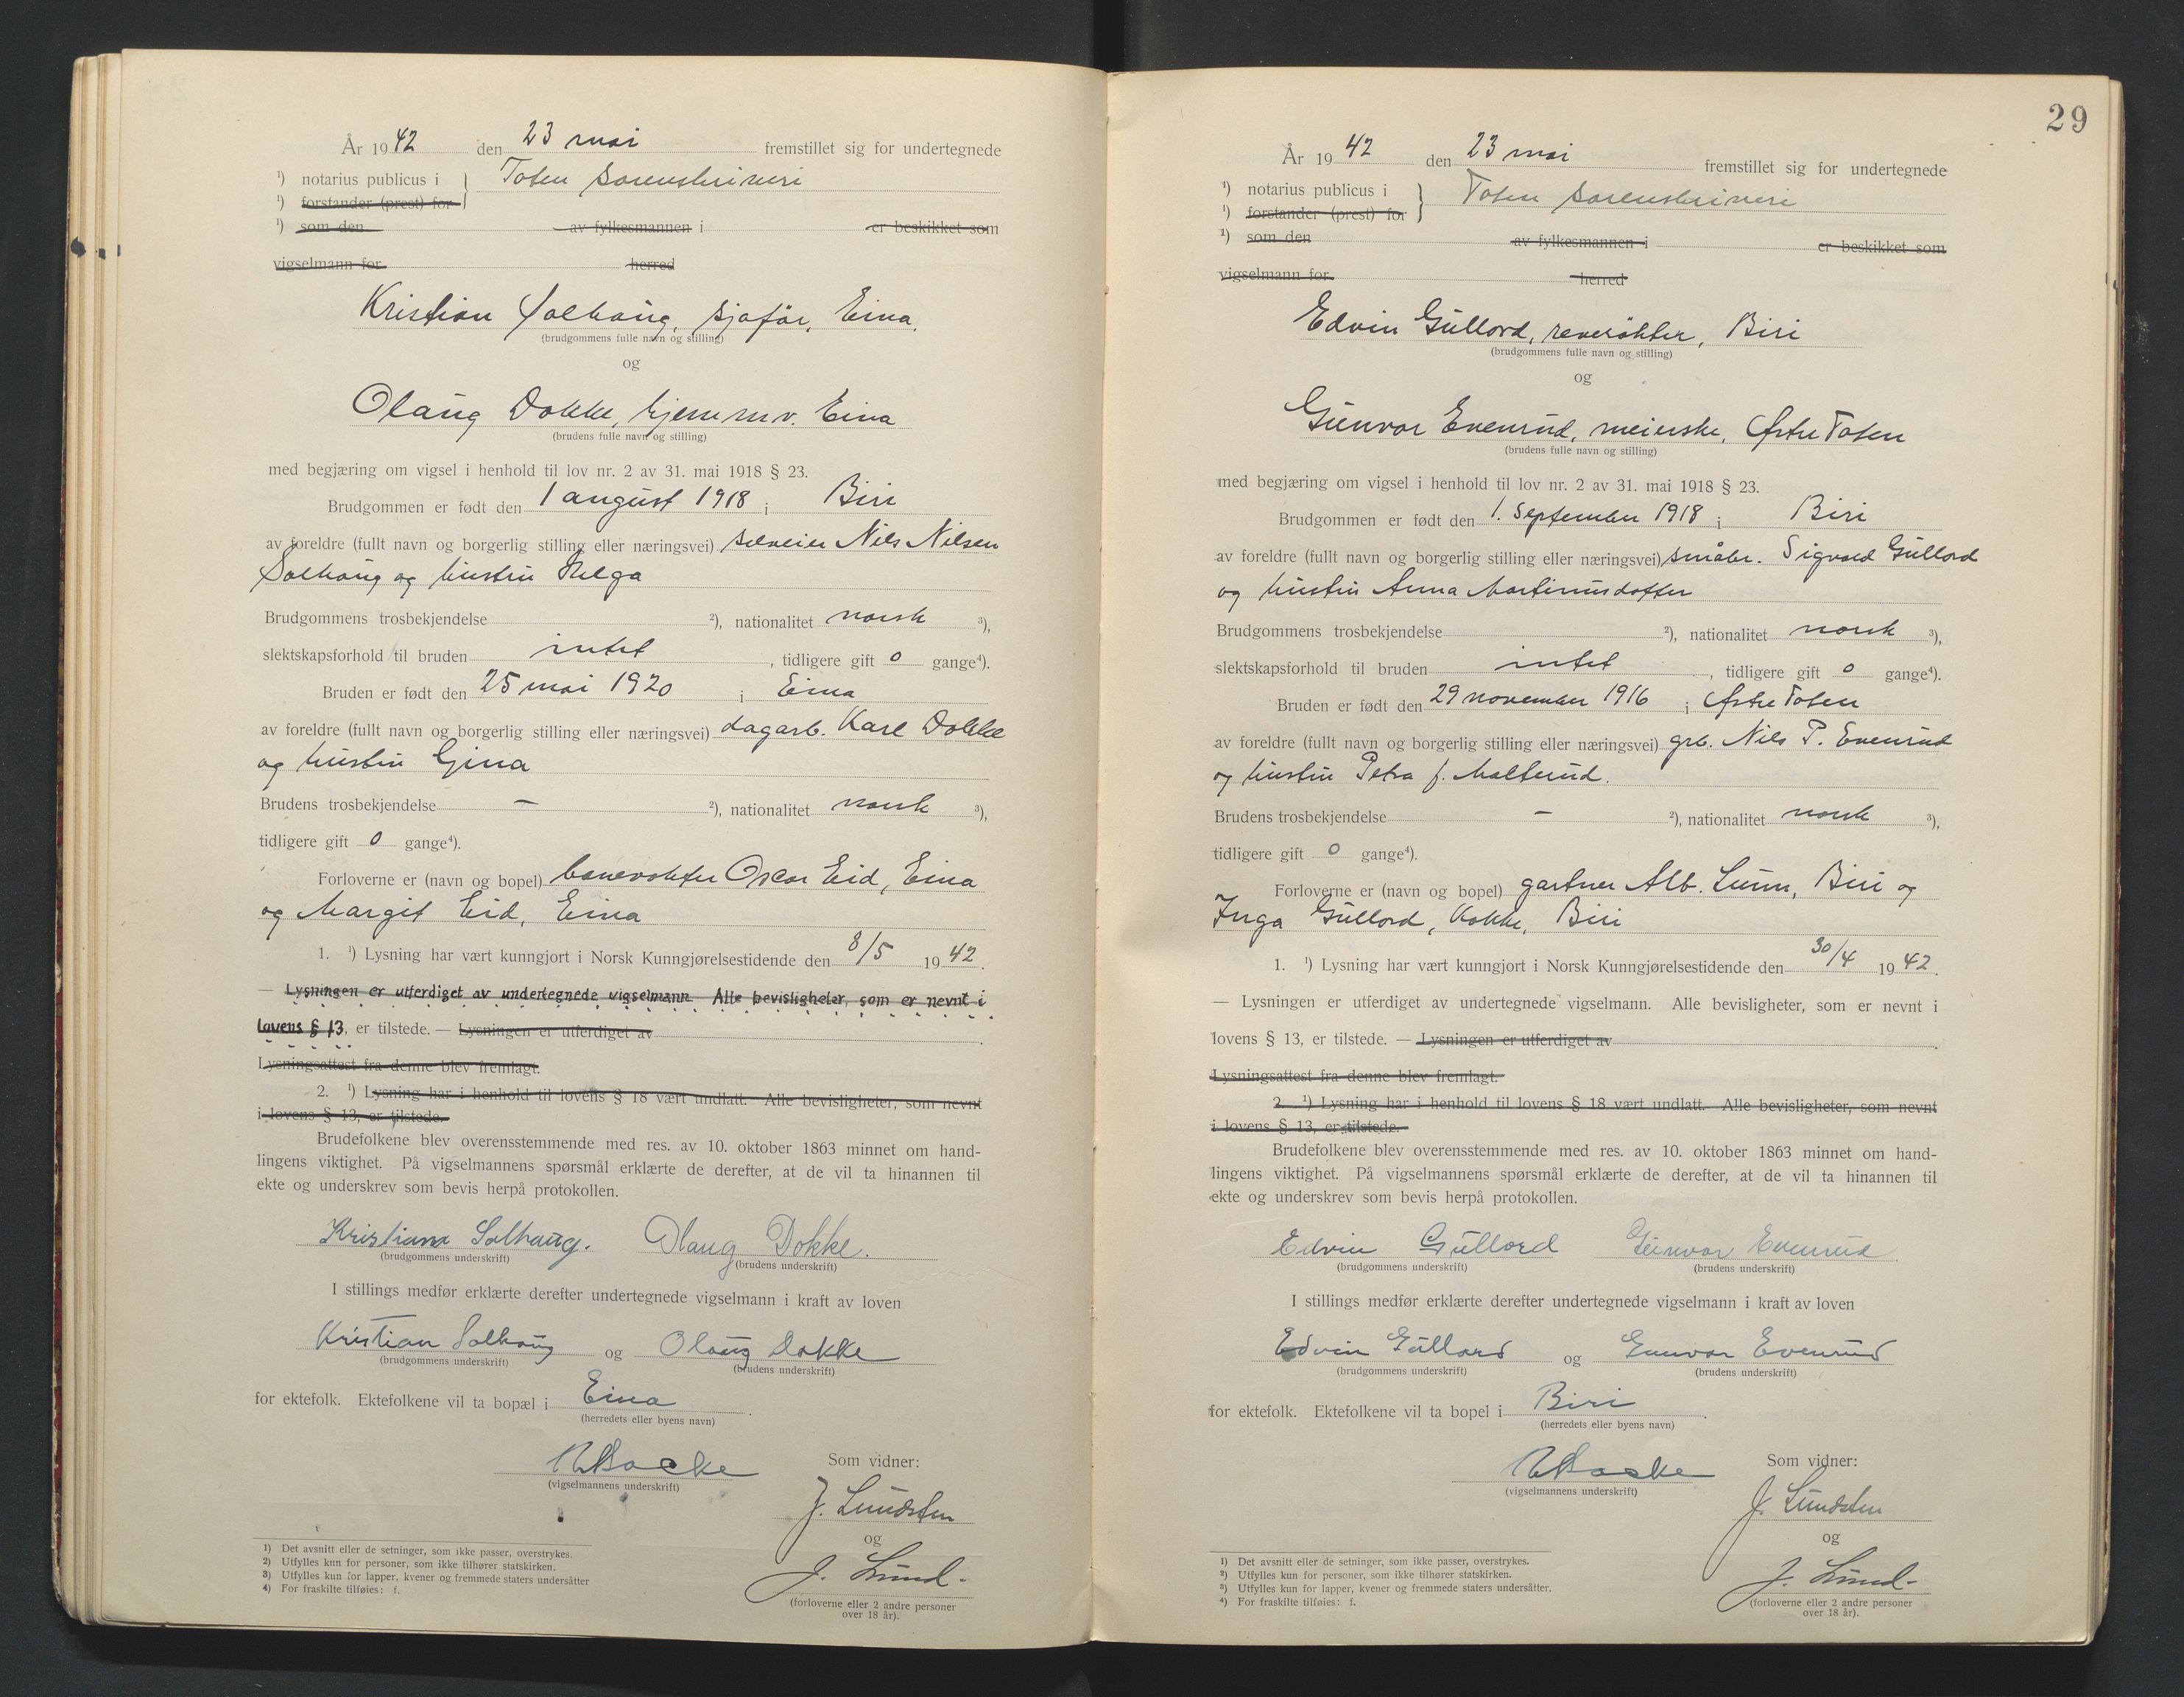 År 1942 den 23 mai fremstillet sig for undertegnede
¹) notarius publicus i } Toten sorenskriveri
¹) forstander (prest) for
¹) som den av fylkesmannen i er beskikket som
vigselmann for herred
Kristian Solhaug, sjåfør, Eina.
(brudgommens fulle navn og stilling)
og
Olaug Dokke, hjemmv. Eina
(brudens fulle navn og stilling)
med begjæring om vigsel i henhold til lov nr. 2 av 31. mai 1918 § 23.
Brudgommen er født den 1 august 1918 i Biri
av foreldre (fullt navn og borgerlig stilling eller næringsvei) selveier Nils Nilsen
Solhaug og hustru Helga
Brudgommens trosbekjendelse ²), nationalitet norsk ³),
slektskapsforhold til bruden intet, tidligere gift 0 gange⁴).
Bruden er født den 25 mai 1920 i Eina
av foreldre (fullt navn og borgerlig stilling eller næringsvei) dagarb. Karl Dokke
og hustru Gina
Brudens trosbekjendelse – ²), nationalitet norsk ³),
tidligere gift 0 gange⁴).
Forloverne er (navn og bopel) banevokter Oscar Eid, Eina
og Margit Eid, Eina
1. ¹) Lysning har vært kunngjort i Norsk Kunngjørelsestidende den 8/5 1942.
— Lysningen er utferdiget av undertegnede vigselmann. Alle bevisligheter, som er nevnt i
lovens § 13, er tilstede. — Lysningen er utferdiget av
Lysningsattest fra denne blev fremlagt.
2. ¹) Lysning har i henhold til lovens § 18 vært undlatt. Alle bevisligheter, som nevnt
i lovens § 13, er tilstede.
Brudefolkene blev overensstemmende med res. av 10. oktober 1863 minnet om hand-
lingens viktighet. På vigselmannens spørsmål erklærte de derefter, at de vil ta hinannen til
ekte og underskrev som bevis herpå protokollen.
Kristian Solhaug. Olaug Dokke.
(brudgommens underskrift) (brudens underskrift)
I stillings medfør erklærte derefter undertegnede vigselmann i kraft av loven
Kristian Solhaug og Olaug Dokke
(brudgommens underskrift) (brudens underskrift)
for ektefolk. Ektefolkene vil ta bopæl i Eina.
(herredets eller byens navn)
(vigselmannens underskrift)
Som vidner:
J. Lundsten
og
J. Lund.
(forloverne eller 2 andre personer
over 18 år).
1) Det avsnitt eller de setninger, som ikke passer, overstrykes.
2) Utfylles kun for personer, som ikke tilhører statskirken.
3) Utfylles kun for lapper, kvener og fremmede staters undersåtter
4) For fraskilte tilføies: f.
29
År 1942 den 23 mai fremstillet sig for undertegnede
¹) notarius publicus i } Toten sorenskriveri
¹) forstander (prest) for
¹) som den av fylkesmannen i er beskikket som
vigselmann for herred
Edvin Gullord, reverøkter, Biri
(brudgommens fulle navn og stilling)
og
Gunvor Evenrud, meierske, Østre Toten
(brudens fulle navn og stilling)
med begjæring om vigsel i henhold til lov nr. 2 av 31. mai 1918 § 23.
Brudgommen er født den 1. september 1918 i Biri
av foreldre (fullt navn og borgerlig stilling eller næringsvei) småbr. Sigvald Gullord
og hustru Anna Martinusdotter
Brudgommens trosbekjendelse ²), nationalitet norsk ³),
slektskapsforhold til bruden intet, tidligere gift 0 gange⁴).
Bruden er født den 29 november 1916 i Østre Toten
av foreldre (fullt navn og borgerlig stilling eller næringsvei) grb. Nils P. Evenrud
og hustru Petra f. Malterud.
Brudens trosbekjendelse – ²), nationalitet norsk ³),
tidligere gift 0 gange⁴).
Forloverne er (navn og bopel) gartner Alb. Lunn, Biri og
Inga Gullord, kokke, Biri
1. ¹) Lysning har vært kunngjort i Norsk Kunngjørelsestidende den 30/4 1942.
— Lysningen er utferdiget av undertegnede vigselmann. Alle bevisligheter, som er nevnt i
lovens § 13, er tilstede. — Lysningen er utferdiget av
Lysningsattest fra denne blev fremlagt.
2. ¹) Lysning har i henhold til lovens § 18 vært undlatt. Alle bevisligheter, som nevnt
i lovens § 13, er tilstede.
Brudefolkene blev overensstemmende med res. av 10. oktober 1863 minnet om hand-
lingens viktighet. På vigselmannens spørsmål erklærte de derefter, at de vil ta hinannen til
ekte og underskrev som bevis herpå protokollen.
Edvin Gullord Gunvor Evenrud.
(brudgommens underskrift) (brudens underskrift)
I stillings medfør erklærte derefter undertegnede vigselmann i kraft av loven
Edvin Gullord og Gunvor Evenrud
(brudgommens underskrift) (brudens underskrift)
for ektefolk. Ektefolkene vil ta bopel i Biri.
(herredets eller byens navn)
(vigselmannens underskrift)
Som vidner:
J. Lundsten
og
J. Lund.
(forloverne eller 2 andre personer
over 18 år).
1) Det avsnitt eller de setninger, som ikke passer, overstrykes.
2) Utfylles kun for personer, som ikke tilhører statskirken.
3) Utfylles kun for lapper, kvener og fremmede staters undersåtter.
4) For fraskilte tilføies: f.